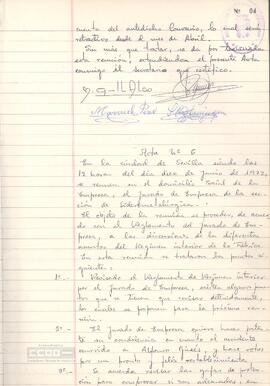 Nº 04
mento del antedicho Convenio, lo cual será
retroactivo desde el mes de Abril.
Sin más que tratar, se da por
esta reunión, extendiendose el presente Acta
conmigo el secretario que certifico.
Manuel
Acta Nº 6
En la ciudad de Sevilla siendo las
12 horas del día diez de Junio de 1972,
se reunen en el domicilio Social de la
Empresa, el Jurado de Empresa de la sección
de Siderometalúrgica.
El objeto de la reunión es proceder, de acuer
do con el Reglamento del Jurado de Em-
presa, a las discusiones de los diferentes
asuntos del Régimen interior de la Fábrica.
En esta reunión se trataron los puntos si
guientes:
1º.- Revisando el Reglamento de Régimen interior,
por el Jurado de Empresa, existen algunos pun-
tos que se tienen que revisar detenidamente,
los cuales se proponen para la próxima reu-
nión.
El Jurado de Empresa quiere hacer paten-
te su condolencia en cuanto el accidente
ocurrido a Alfonso y hace votos
por un pronto y feliz restablecimiento.
Se acuerda revisar las gafas de protec-
ción para comprobar si son adecuadas, en